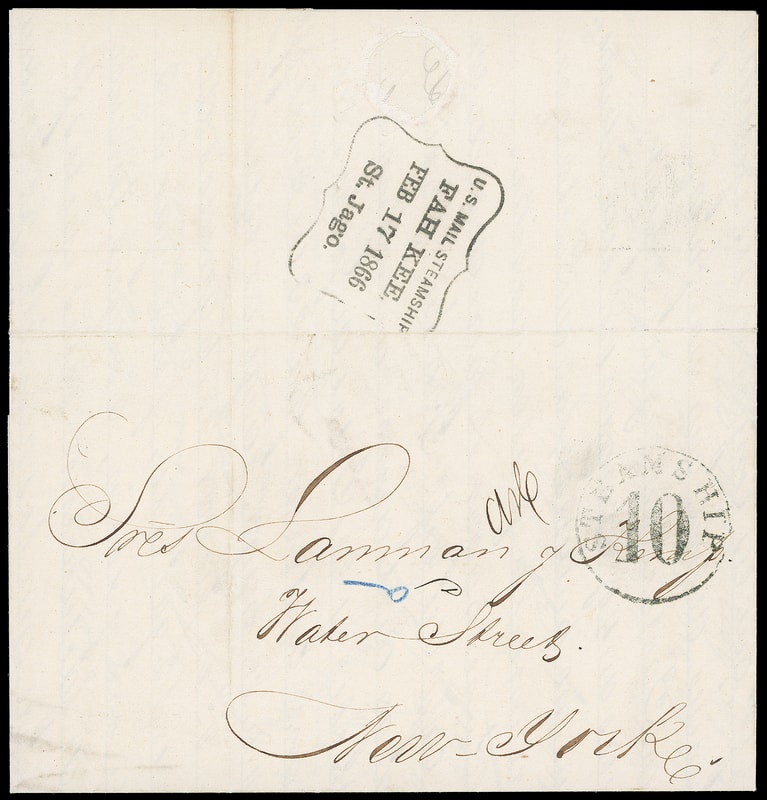 U.S. MAIL STEAMSHIP
FAH KEE.
FEB 17 1866
St. Jago.
STEAMSHIP
10
Sres Lanman y Kemp.
Water Street.
New-York